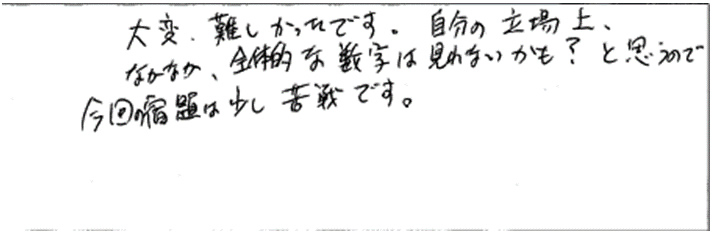 大変、難しかったです。自分の立場上、
なかなか、全体的な数字は見れないかも？と思うので
今回の宿題は少し苦戦です。